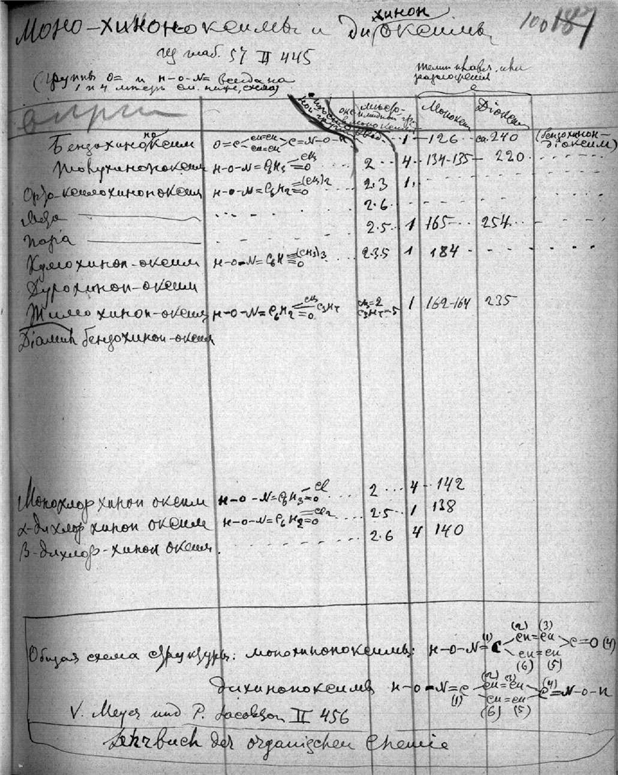 Моно-хинонокси­мы и ди хинон оксимы
100
187
табл. 57 II 445
(группы O= и H-O-N= всегда на
1 и 4
темп. плавл. или разложения
Монокс. Діоксим
Бензохинон оксим O=C CH=CH CH=CH C=N-O-H 1 126 ca. 240 (бензохинон-діоксим)
Толухиноноксим H-O-N=C6H3 CH3 =O 2 4 134-135 220
Орто-ксилохинонокcим H-O-N=C6H2 (CH3)2 =O 2.3 1
2.6
Мета
Пара 2.5 1 165 254
Кумохинон-оксим H-O-N=C6H (CH3)3 =O 2.3.5 1 184
Дурохинон-оксим
Тимохинон-оксим H-O-N=C6H2 CH3 C3H7 =O CH3=2 C3H7=5 1 162-164 235
Діамин бензохинон-оксим
Монохлор хинон оксим H-O-N=C6H3 Cl =O 2 4 142
α-дихлор хинон оксим H-O-N=C6H2 Cl2 =O 2.5 1 138
β-дихлор-хинон оксим 2.6 4 140
Общая схема структуры: монохинноноксимы: H-O-N=C (1) (2) (3) CH=CH CH=CH (6) (5) C=O (4)
дихиноноксимы H-O-N=C (1) (2) (3) CH=CH CH=CH (6) (5) (4) C=N-O-H
V. Meyer und P. Jacobson II 456
Lehrbuch der organischen Chemie